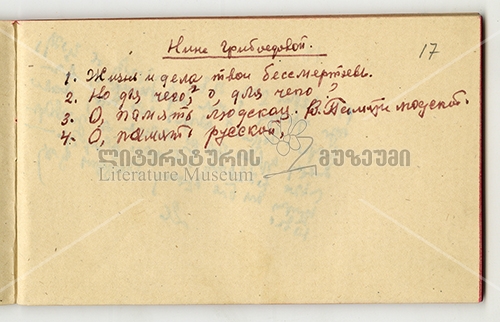 Нине Грибоедовой.
17
1. Жизнь и дела твои бессмертны.
2. Но для чего, о, для чего
3. О, память людская. В. Памяти людской.
4. О, память русской,
ლიტერატურის მუზეუმი
Literature Museum